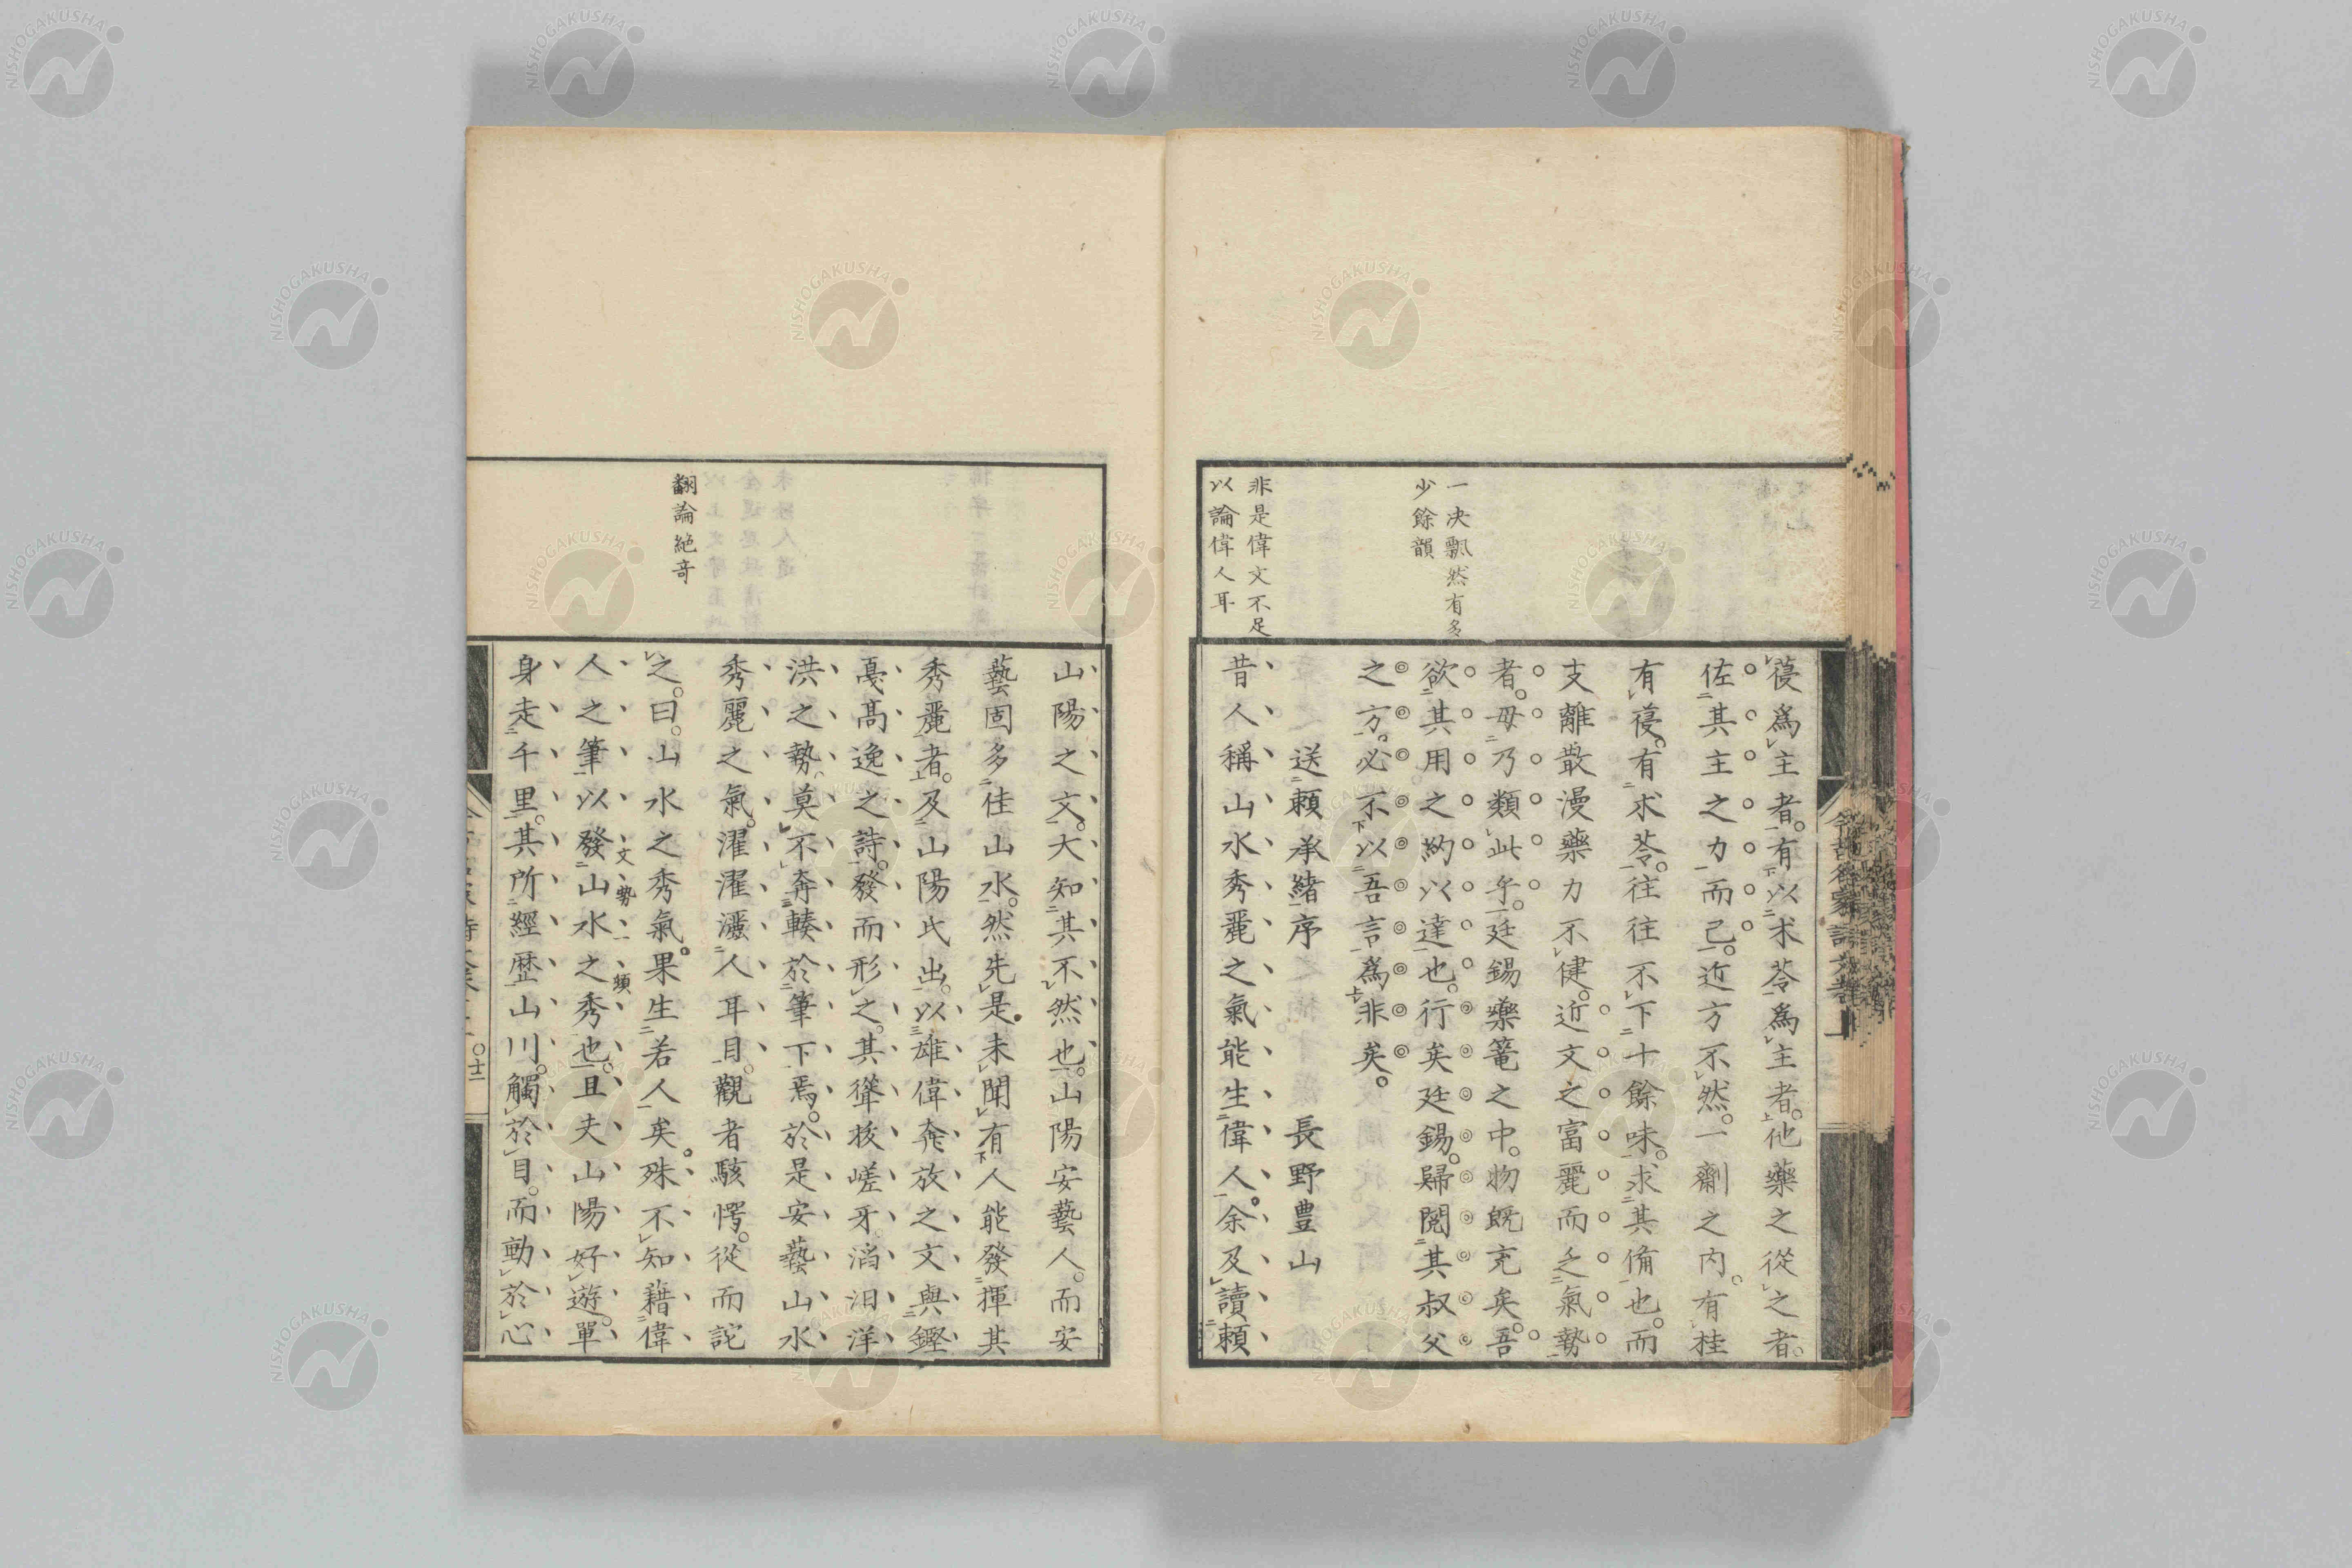 一決飄然有多
少餘韻
非是偉文不足
以論偉人耳
葠爲主者。有以求苓爲主者。他藥之從之者。
佐其主之力而已。近方不然。一劑之内。有桂
有葠。有求苓。往往不下十餘味。求其備也。而
支離散漫藥力不健。近文之富麗而乏氣勢
者。毋乃類此乎。廷錫藥篭之中。物既充矣。吾
欲其用之約以達也。行矣廷錫。歸閲其叔父
之方。必不以吾言爲非矣。
送賴承緒序 長野豊山
昔人稱山水秀麗之氣能生偉人。余及讀賴
翻論絶奇
山陽之文。大知其不然也。山陽安藝人。而安
藝固多佳山水。然先是未聞有人能發揮其
秀麗者。及山陽氏出。以雄偉奔放之文與鏗
戞高逸之詩。發而形之。其聳拔嵯牙滔汨洋
洪之勢。莫不奔輳於筆下焉。於是安藝山水
秀麗之氣。濯濯灑人耳目。觀者駭愕。從而詫
之。曰。山水之秀氣。果生若人矣。殊不知藉偉
人之筆以發山水之秀也。且夫山陽好遊。單
文勢一頓
身走千里。其所經歴山川。觸於目。而動於心
十二
NISHOGAKUSHA